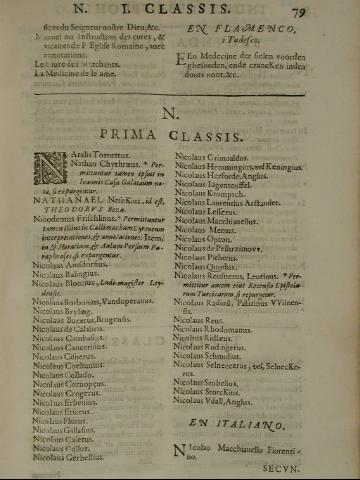 N. I. CLASSIS. 79
fices du Seigneur nostre Dieu, &c.
Manuel ou instruction des cures, &
vicaires de l'Eglise Romaine, avec
annotations.
Le Livre des Marchants.
La Medicine de l'ame.
EN FLAMENCO,
i Tudesco.
Een Medecijne der sielen voorden
ghesonden, ende crancken inden
doots noot, &c.
N.
PRIMA CLASSIS.
NAtalis Tornettus.
Nathan Chythræus. * Permittuntur
tamen ipsus in
Ioannis Casæ Galateum notæ,
si expurgentur.
NATHANAEL Nesekius, id est,
THEODORVS Beza.
Nicodemus Frischlinus. * Permittuntur
tamen illius in Callimachum Cyreneum
interpretationes, & annotationes: Item,
in Horatium, & Aulum Persium Paraphrases,
si expurgentur.
Nicolaus Amsdorfius.
Nicolaus Balingius.
Nicolaus Bloccius, Ludi-magister Leydensis.
Nicolaus Borbonius, Vandoperanus.
Nicolaus Bryling.
Nicolaus Bucerus, Brugensis.
Nicolaus de Calabria.
Nicolaus Cambasius.
Nicolaus Cancerinus.
Nicolaus Cisnerus.
Nicolaus Coeltanius.
Nicolaus Collado.
Nicolaus Cornopœus.
Nicolaus Crogerus.
Nicolaus Erbenius.
Nicolaus Ericeus.
Nicolaus Florus.
Nicolaus Gallasius.
Nicolaus Galetus.
Nicolaus Gallus.
Nicolaus Gerbellius.
Nicolaus Grimoaldus.
Nicolaus Hemmingius, vel Keningius.
Nicolaus Herforde, Anglus.
Nicolaus Iagenteuffel.
Nicolaus Krompach.
Nicolaus Laurentius Arslander.
Nicolaus Lesserus.
Nicolaus Macchiauellus.
Nicolaus Menus.
Nicolaus Opton.
Nicolaus de Pelhrzimovv.
Nicolaus Pithorius.
Nicolaus Quodus.
Nicolaus Reusnerus, Leorinus. * Permittitur
autem eius Recensio Epistolarum
Turcicarum, si repurgetur.
Nicolaus Radzivil, Palatinus VVilnensis.
Nicolaus Reus.
Nicolaus Rhodomanus.
Nicolaus Ridleus.
Nicolaus Rudingerus.
Nicolaus Schmidius.
Nicolaus Selneccerus, vel, Selneckerus.
Nicolaus Srubelius.
Nicolaus Storckius.
Nicolaus Vdall, Anglus.
EN ITALIANO.
NIcolao Macchiauello Fiorentino.
SECVN.